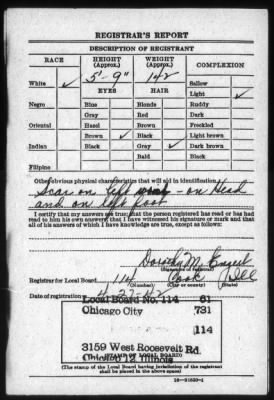 REGISTRAR'S REPORT
DESCRIPTION OF REGISTRANT
RACE HEIGHT (Approx.) WEIGHT (Approx.) COMPLEXION
5'-9" 142
White ✓ Sallow
EYES HAIR Light ✓
Negro Blue Blonde Ruddy
Gray Red Dark
Oriental Hazel Brown Freckled
Brown ✓ Black Light brown
Indian Black Gray ✓ Dark brown
Bald Black
Filipino
Other obvious physical characteristics that will aid in identification
Scar on left - on Head
and on left foot
I certify that my answers are true; that the person registered has read or has had
read to him his own answers; that I have witnessed his signature or mark and that
all of his answers of which I have knowledge are true, except as follows:
Dorothy M.
(Signature of registrar)
Registrar for Local Board 114 Cook Ill
(Number) (City or county) (State)
Date of registration
Local Board No. 114 61
Chicago City 731
114
3159 West Roosevelt Rd.
Chicago 12, Illinois
(STAMP OF LOCAL BOARD)
(The stamp of the Local Board having jurisdiction of the registrant
shall be placed in the above space)
16—21630-1